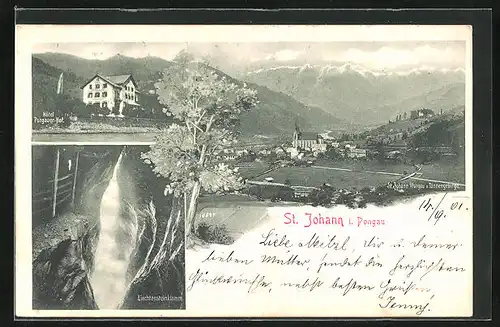 Hôtel
Pongauer-Hof.
St. Johann i. Pongau u. Tännengebirge.
Liechtensteinklamm
St. Johann i. Pongau
14/9 01.
Liebe Mitzl, Dir u. deiner
lieben Mutter, sendet die herzlichsten
Glückwünsche, nebst besten Grüßen
Jenny